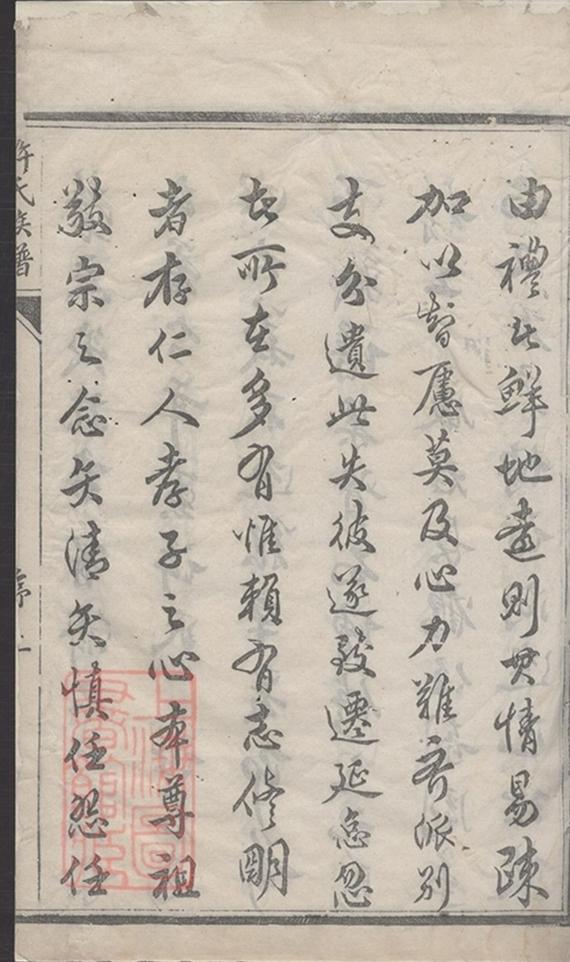 由禮此鮮地遠則其情易疎
加以智慮莫及心力難齊派別
支分遺此失彼遂致遷延怠忽
者所在多有惟賴有志修明
者存仁人孝子之心本尊祖
敬宗之念矢清矢慎任怨任
許氏族譜
序